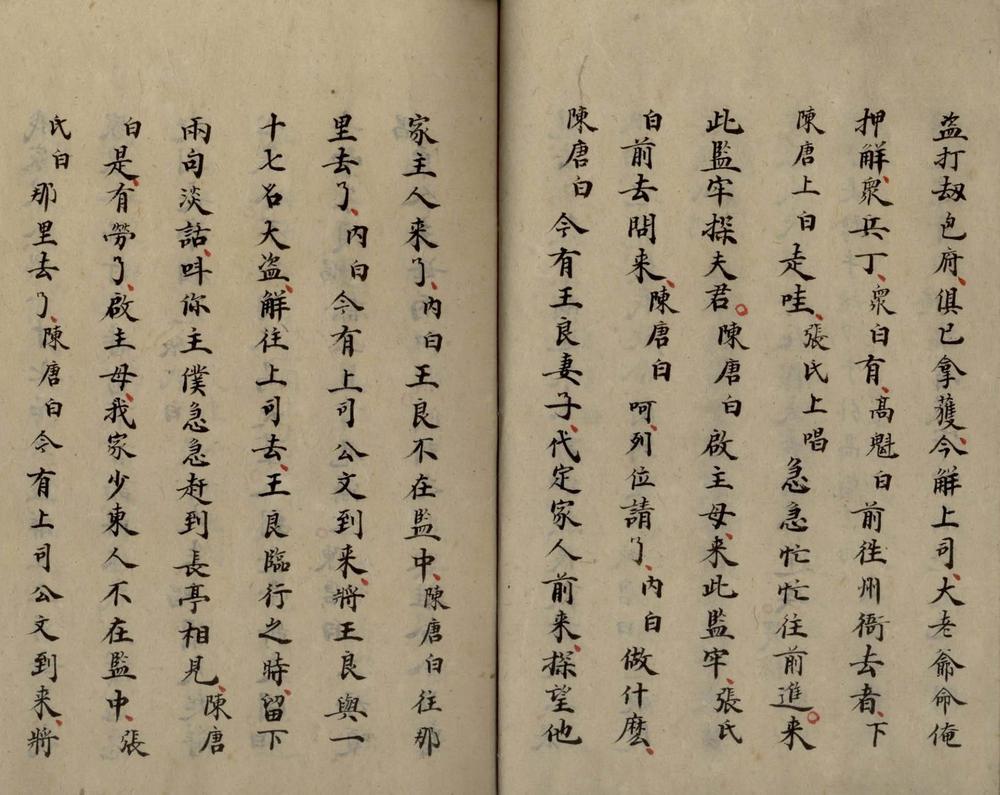 盗打刼包府、俱已拿獲、今解上司、大老爺命俺
押解、衆兵丁、衆白有、高魁白前徃州衙去者、下
陳唐上白走哇、張氏上唱急急忙忙往前進。来
此監牢探夫君。陳唐白啟主母、来此監牢、張氏
白前去問来、陳唐白呵、列位請了、内白做什麽、
陳唐白今有王良妻子、代定家人前来、探望他
家主人来了、内白王良不在監中、陳唐白往那
里去了、内白今有上司公文到来、將王良與一
十七名大盗、解往上司去、王良臨行之時、留下
兩句淡話、呌你主僕急急赶到長亭相見、陳唐
白是、有勞了、啟主母、我家少東人不在監中、張
氏白那里去了、陳唐白今有上司公文到来、將